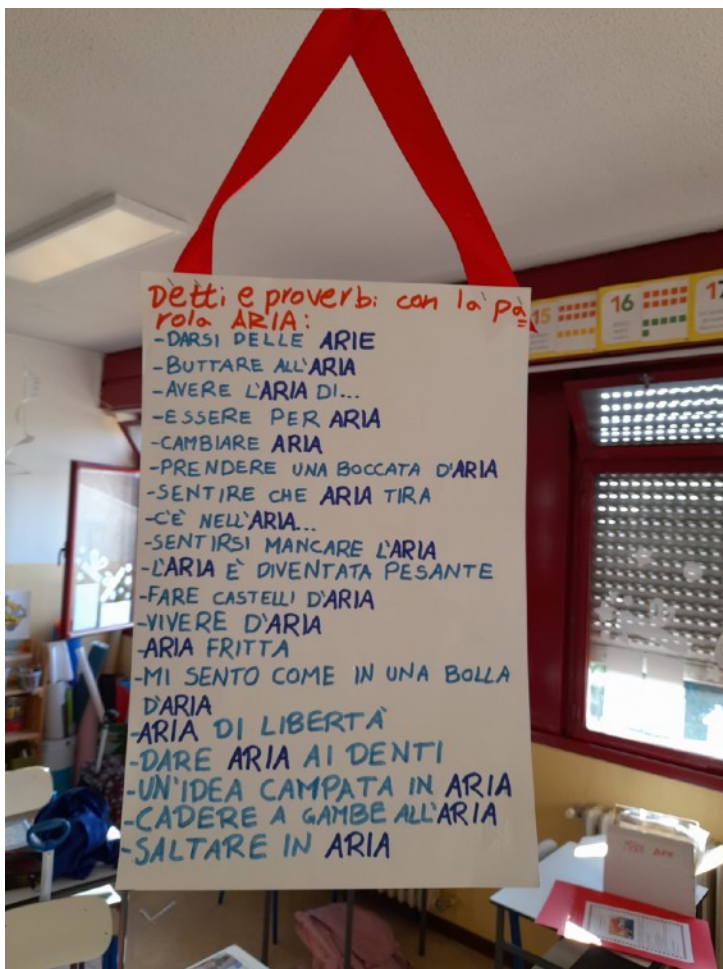 Detti e proverbi con la pa
rola ARIA:
-DARSI DELLE ARIE
-BUTTARE ALL'ARIA
-AVERE L'ARIA DI...
-ESSERE PER ARIA
-CAMBIARE ARIA
-PRENDERE UNA BOCCATA D'ARIA
-SENTIRE CHE ARIA TIRA
-C'È NELL'ARIA...
-SENTIRSI MANCARE L'ARIA
-L'ARIA È DIVENTATA PESANTE
-FARE CASTELLI D'ARIA
-VIVERE D'ARIA
-ARIA FRITTA
-MI SENTO COME IN UNA BOLLA
D'ARIA
-ARIA DI LIBERTÀ
-DARE ARIA AI DENTI
-UN'IDEA CAMPATA IN ARIA
-CADERE A GAMBE ALL'ARIA
-SALTARE IN ARIA
15
16
17